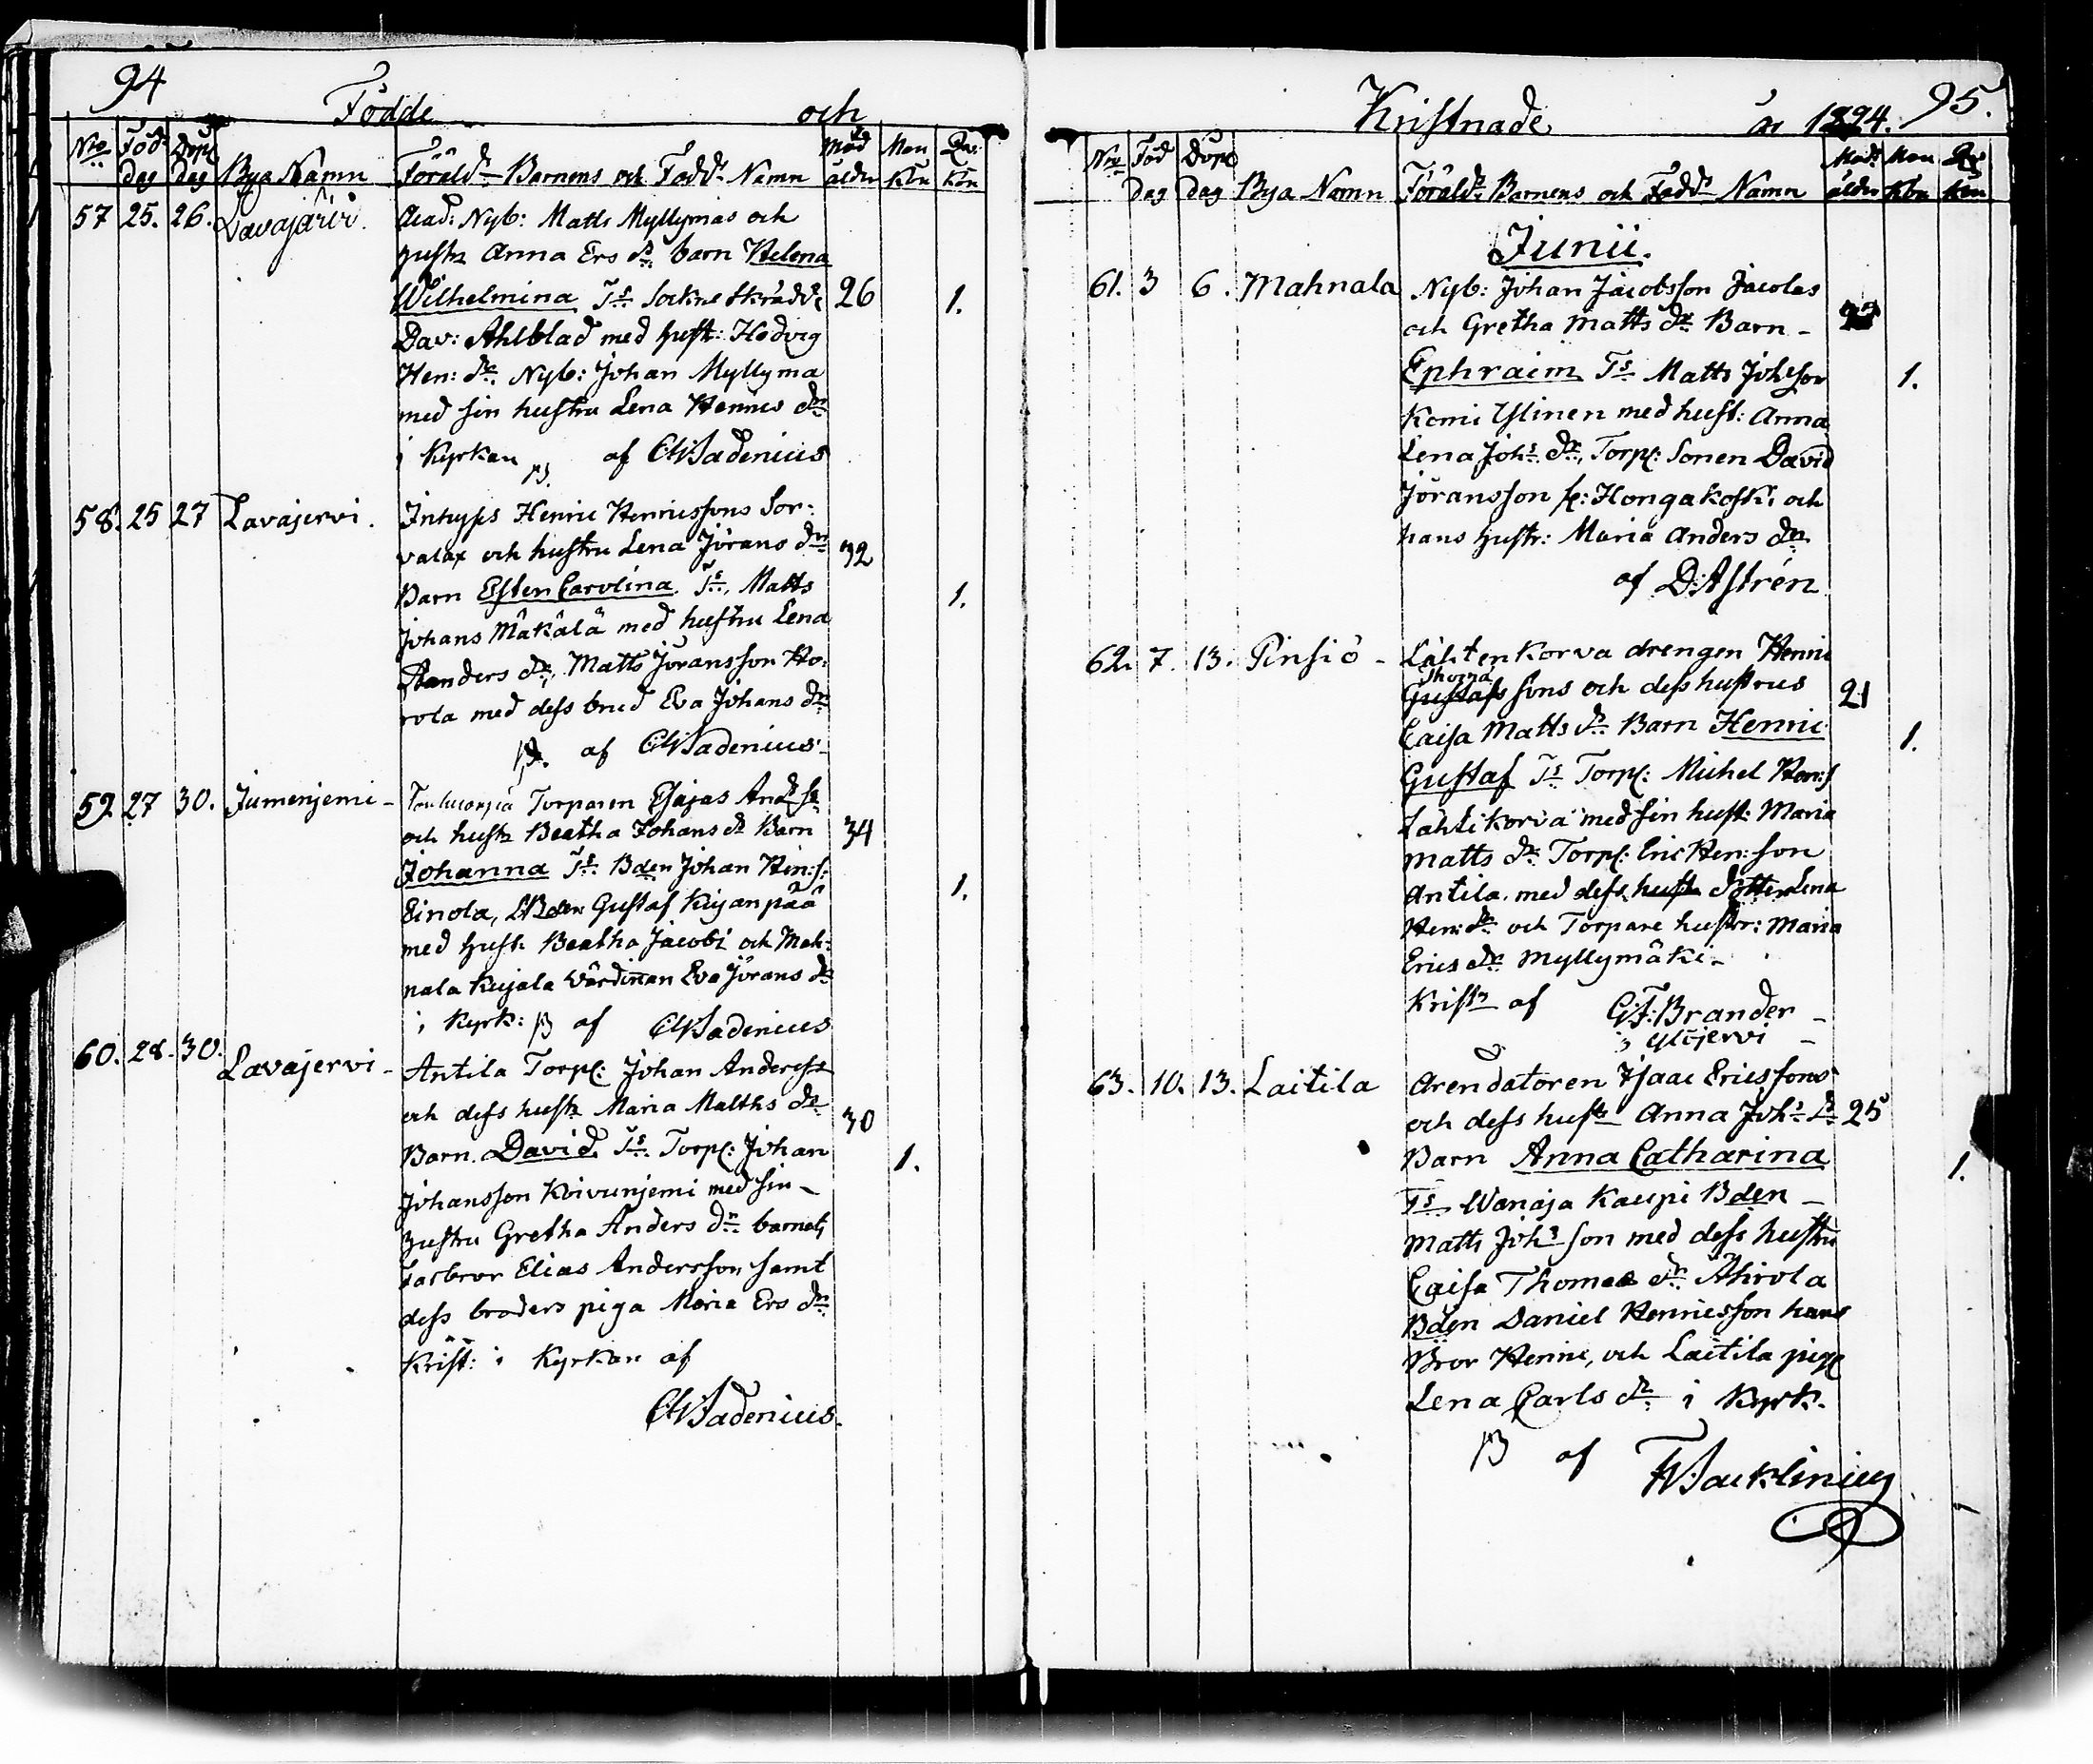 94
Födde och
Nro Föd dag Döpl dag Bya Namn Föräld:r Barnens och Fadd:r Namn Mod ålder Man kön Qv: kön
57 25. 26. Lavajärvi. Acad: Nyb: Matts Myllymäs och
hustr Anna Ers dr. barn Helena
Wilhelmina Ts Sockne Skrädd: 26 1.
Dav: Ahlblad med hust: Hedvig
Hen: dr. Nyb: Johan Myllymä
med sin hustru Lena Henrics dr
i Kyrkan af CWSadenius
58. 25 27 Lavajervi. Inhyss Henric Henricssons Sor-
valax och hustru Lena Jörans dr 32
Barn Ester Carolina Ts. Matts 1.
Johans Mäkälä med hustru Lena
Anders dr, Matts Jöransson Ho-
rola med dess brud Eva Johans dr
af CWSadenius
59 27 30. Jumenjemi - Torparen Esajas And:s
och hustr Beatha Johans dr Barn 34
Johanna Ts. Bden Johan Hin:s: 1.
Einola, Bden Gustaf Kujanpää
med hust. Beatha Jacobs och Mah-
nala Kujala Värdinnan Eva Jörans dr
i Kyrk: af CWSadenius
60. 28. 30. Lavajervi - Antila Torp: Johan Anderss
och dess hustr Maria Matths dr 30
Barn. David Ts. Torp: Johan 1.
Johansson Koivunjemi med sin -
hustru Gretha Anders dr barnets
farbror Elias Andersson samt
dess broders piga Maria Ers dr
Krist: i Kyrkan af
CWSadenius.
Kristnade år 1824. 95.
Nro Föd dag Döpl dag Bya Namn Föräld:r Barnens och Fadd:r Namn Mod:s ålder Man kön Qv kön
Junii.
61. 3 6. Mahnala Nyb: Johan Jacobsson Jacolas
och Gretha Matts dr Barn -
Ephraim Ts Matts Johsson 1.
Komi Yslinen med hust: Anna
Lena Johs dr, Torp: Sonen David
Jöransson fr: Hongakoski och
hans hustr: Maria Anders dr
af D:Aström
62. 7. 13. Pinsiö - Lähtenkorva drengen Henric
Thomæ
Gustafs sons och dess hustrus 21
Caisa Matts dr Barn Henric 1.
Gustaf Ts Torp: Michel Hen:s
Lähtikorva med sin hust: Maria
Matts dr Torp: Eric Hen:son
Antila med dess hustr dotter Lena
Hen: dr och Torpare hustr: Maria
Erics dr Myllymäki -
Kristn af G:F:Brander -
i Ylöjervi -
63. 10. 13. Laitila Arendatoren Isaac Ericssons
och dess hustr Anna Johs dr 25
Barn Anna Catharina 1.
Ts Wanaja Kaupi Bden -
Matts Johs son med dess hustru
Caisa Thomæ dr Ähirola
Bden Daniel Henricsson hans
Bror Henric, och Laitila pige
Lena Carls dr i Kyrk.
af FWBäcklinius